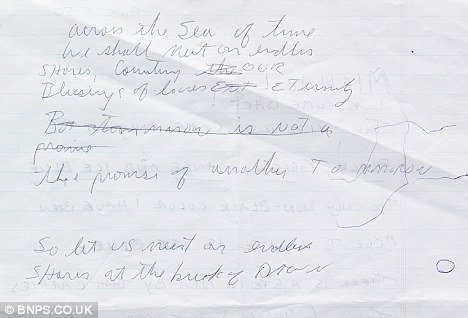 across the Sea of time
we shall meet on endless
Shores, Counting the OUR
Blessings of loves Eternity
But tommorow is not a
promise
the promise of another Tomorrow
So let us meet on endless
Shores at the break of Dawn
© BNPS.CO.UK